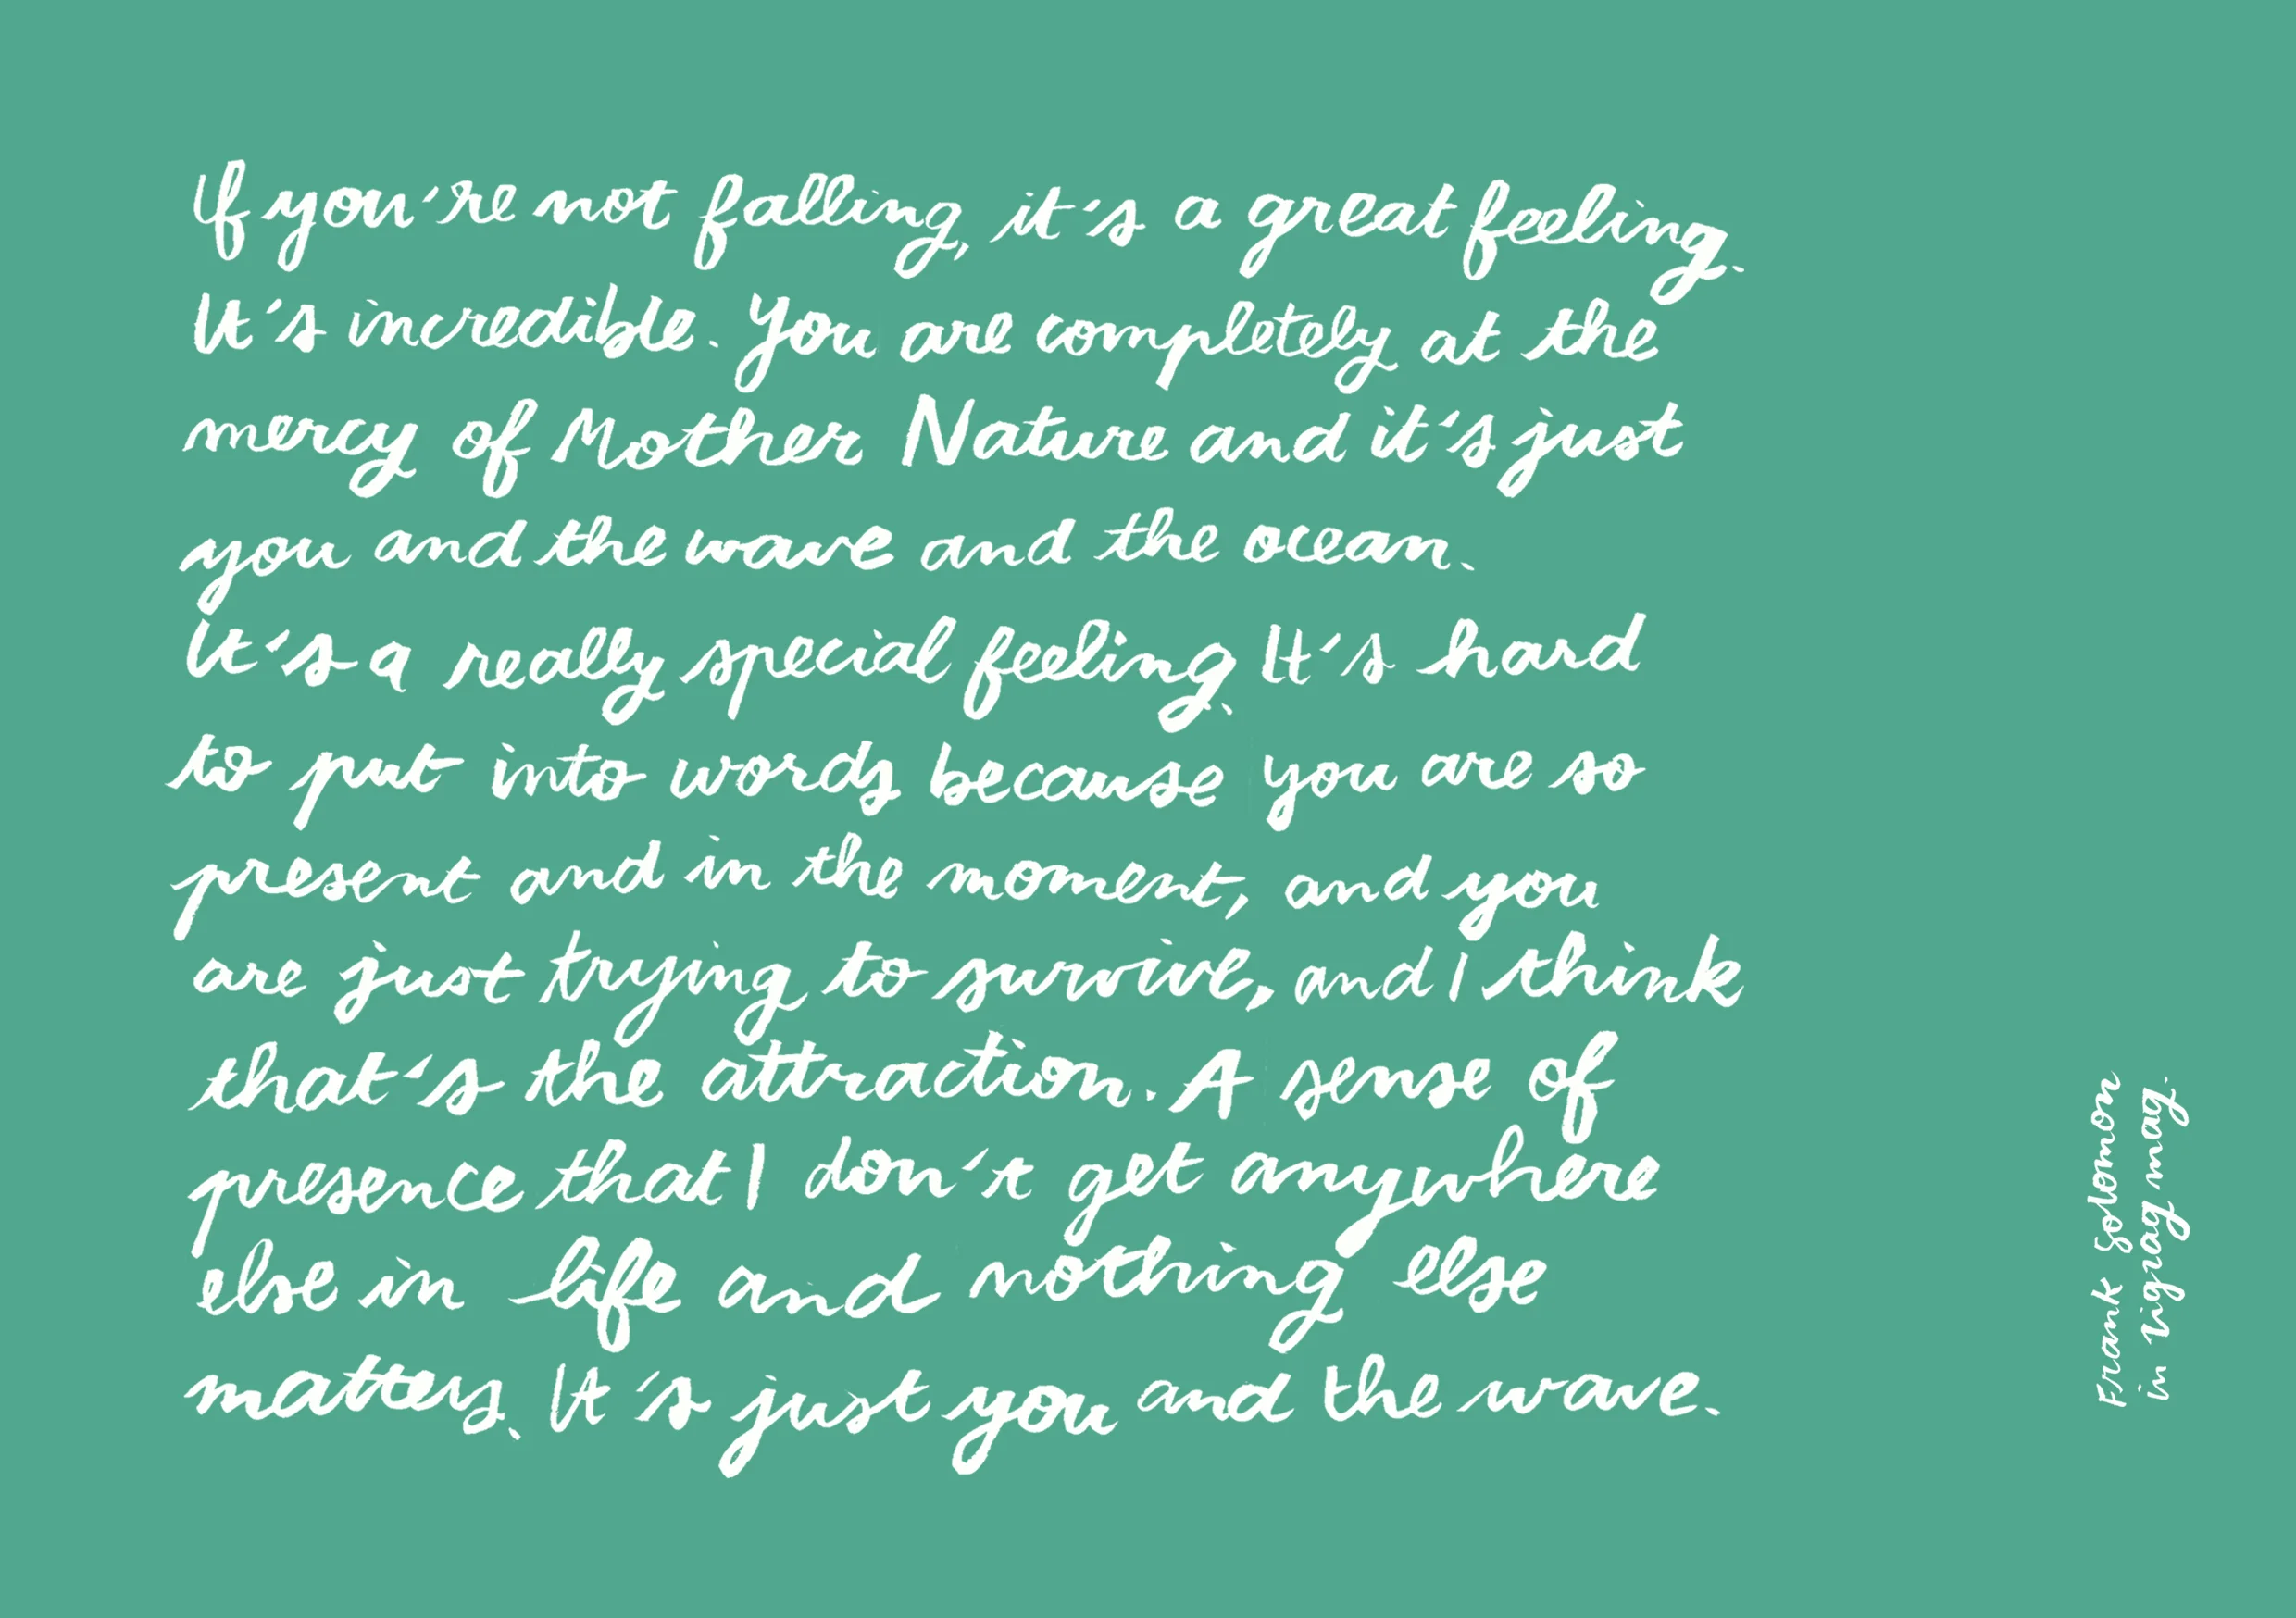 If you're not falling, it's a great feeling.
It's incredible. You are completely at the
mercy of Mother Nature and it's just
you and the wave and the ocean.
It's a really special feeling. It's hard
to put into words because you are so
present and in the moment, and you
are just trying to survive, and I think
that's the attraction. A sense of
presence that I don't get anywhere
else in life and nothing else
matters. It's just you and the wave.
Frank Solomon
in Zigzag mag.